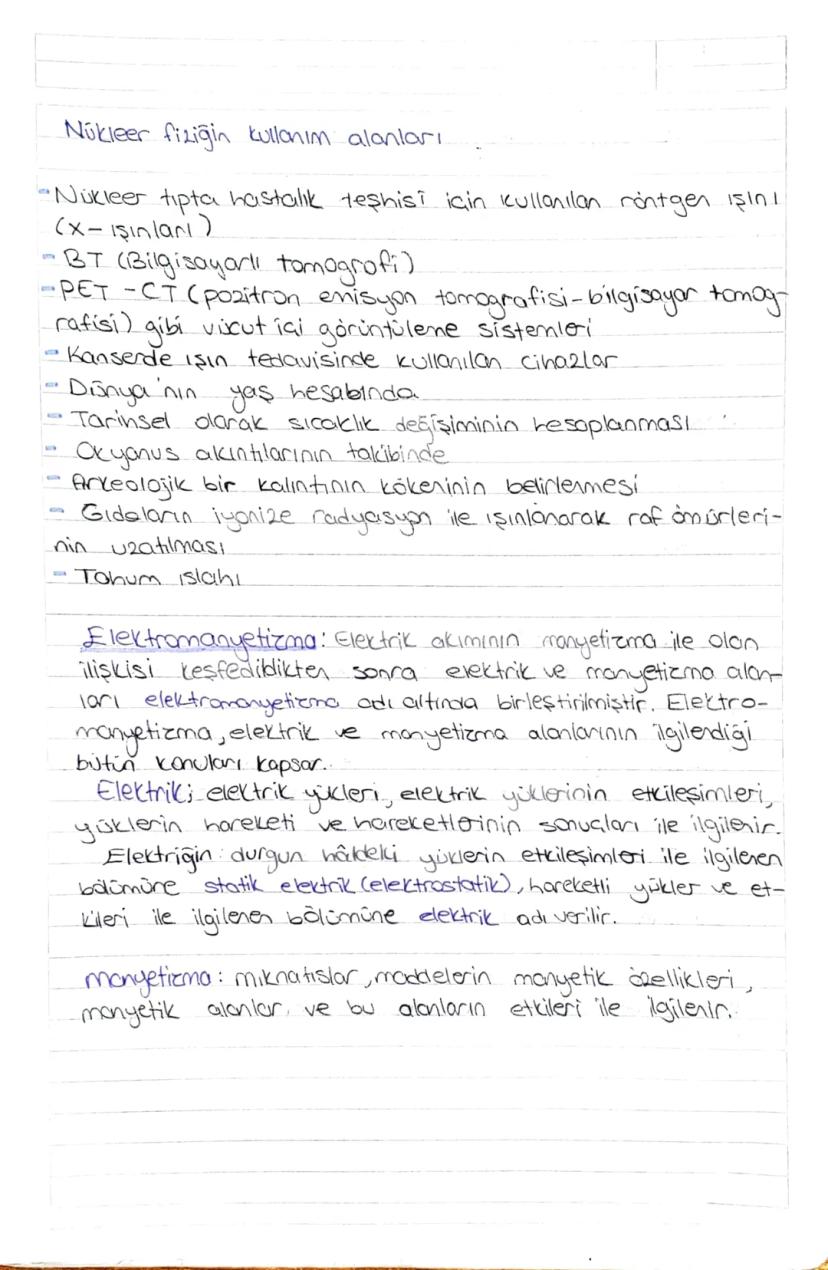 Nükleer fiziğin kullanım alanları
- Nükleer tıpta hastalık teşhisi için kullanılan röntgen ışını
(x- ışınları)
- BT (Bilgisayarlı tomografi)
- PET - CT (pozitron emisyon tomografisi-bilgisayar tomog-
rafisi) gibi vücut içi görüntüleme sistemleri
- Kanserde ışın tedavisinde kullanılan cihazlar
- Dünya'nın yaş hesabında
- Tarihsel olarak sıcaklık değişiminin hesaplanması
- Okyanus akıntılarının takibinde
- Arkeolojik bir kalıntının kökeninin belirlenmesi
- Gıdaların iyonize radyasyon ile ışınlanarak raf ömürleri-
nin uzatılması
- Tohum ıslahı
Elektromanyetizma: Elektrik akımının manyetizma ile olan
ilişkisi keşfedildikten sonra elektrik ve manyetizma alan-
ları elektromanyetizma adı altında birleştirilmiştir. Elektro-
manyetizma, elektrik ve manyetizma alanlarının ilgilendiği
bütün konuları kapsar.
Elektrik; elektrik yükleri, elektrik yüklerinin etkileşimleri,
yüklerin hareketi ve hareketlerinin sonuçları ile ilgilenir.
Elektriğin durgun hâldeki yüklerin etkileşimleri ile ilgilenen
bölümüne statik elektrik (elektrostatik), hareketli yükler ve et-
kileri ile ilgilenen bölümüne elektrik adı verilir.
manyetizma: mıknatıslar, maddelerin manyetik özellikleri,
manyetik alanlar, ve bu alanların etkileri ile ilgilenir.